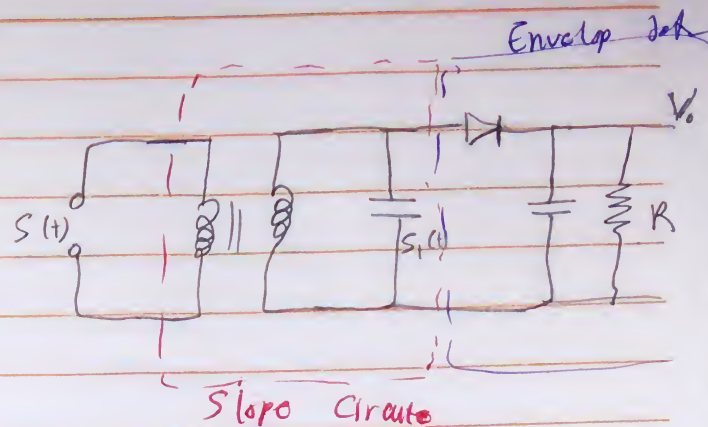 Envelop det
V.
S(t)
S₁(t)
R
Slope Circute